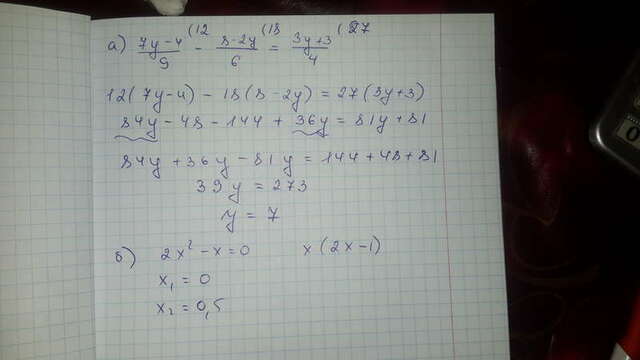 а) (7y-4)/9 (12 - (8-2y)/6 (18 = (3y+3)/4 (27
12(7y-4) - 18(8-2y) = 27(3y+3)
84y - 48 - 144 + 36y = 81y + 81
84y + 36y - 81y = 144 + 48 + 81
39y = 273
y = 7
б) 2x² - x = 0 x(2x-1)
x₁ = 0
x₂ = 0,5